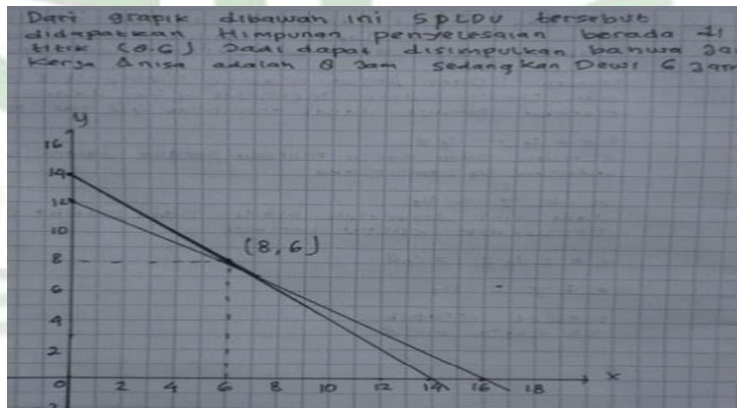 Dari grapik dibawah ini SPLDV tersebut
didapatkan Himpunan penyelesaian berada di
titik (8,6) Jadi dapat disimpulkan bahwa Ja
Kerja Anisa adalah 8 Jam sedangkan Dewi 6 Jam
y
16
14
12
10
(8,6)
8
6
4
2
0 2 4 6 8 10 12 14 16 18 x
2